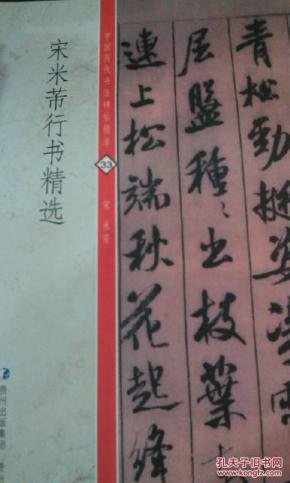 宋米芾行书精选
中国历代书法碑帖精
33
宋 米芾
青松勁挺姿凌
屈盤種〻出枝葉
連上松端秋花起絳
贵州出版集团
孔夫子旧书网